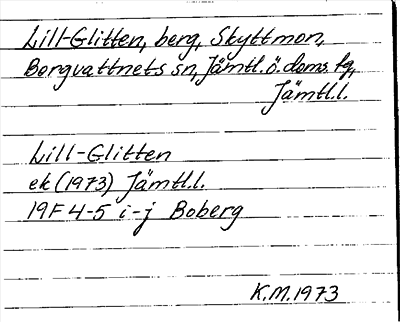 Lill-Glitten, berg, Skyttmon,
Borgvattnets sn, Jämtl. ö. doms. fg,
Jämtl.l.
Lill-Glitten
ek (1973) Jämtl.l.
19F 4-5 i-j Boberg
K.M. 1973